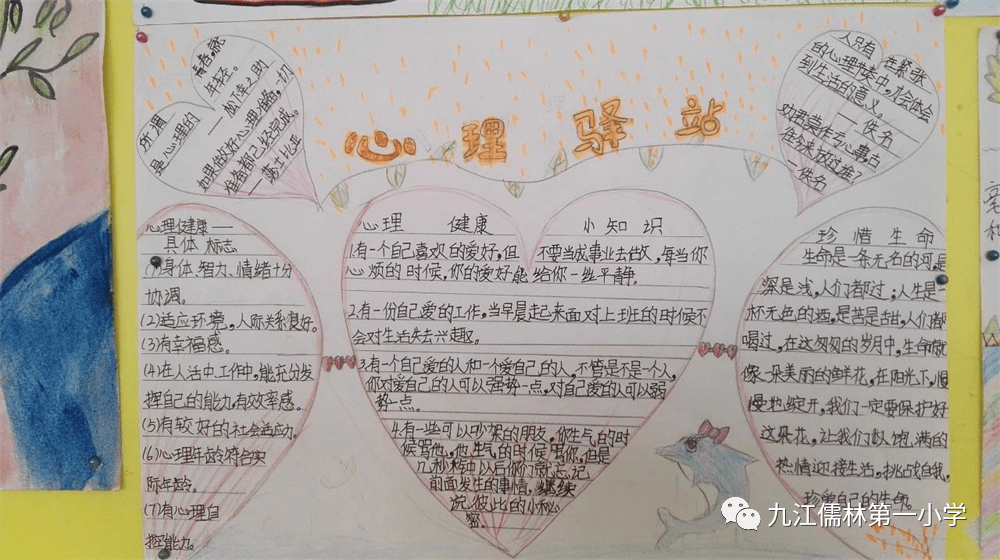 心理驿站
所谓
青春，就
是心理的
年轻。
——松江幸之助
如果做好心理准备，一切
准备都已经完成。
——莎士比亚
人只有在紧张
的心理节奏中，才会体会
到生活的意义。
——佚名
——佚名
心理健康——
具体标志
(1)身体、智力、情绪十分
协调。
(2)适应环境，人际关系良好。
(3)有幸福感。
(4)在人活中工作中，能充分发
挥自己的能力，有效率感。
(5)有较好的社会适应力。
(6)心理年龄符合实
际年龄。
(7)有心理自
控能力。
心理 健康 小知识
1.有一个自己喜欢的爱好，但不要当成事业去做，每当你
心烦的时候，你的爱好能给你一些平静。
2.有一份自己爱的工作，当早晨起来面对上班的时候不
会对生活失去兴趣。
3.有一个自己爱的人和一个爱自己的人，不管是不是一个人，
你对爱自己的人可以强势一点，对自己爱的可以弱
势一点。
4.有一些可以吵架的朋友，你生气的时
候骂他，他生气的时候骂你，但是
几秒钟以后你们就忘记
前面发生的事情，继续
说彼此的小秘
密
珍惜生命
生命是一条无名的河，是
深是浅，人们都过；人生是一
杯无色的酒，是苦是甜，人们都
喝过，在这匆匆的岁月中，生命就
像一朵美丽的鲜花，在阳光下，慢
慢地绽开，我们一定要保护好
这朵花，让我们以饱满的
热情迎接生活，挑战自我，
珍惜自己的生命。
九江儒林第一小学